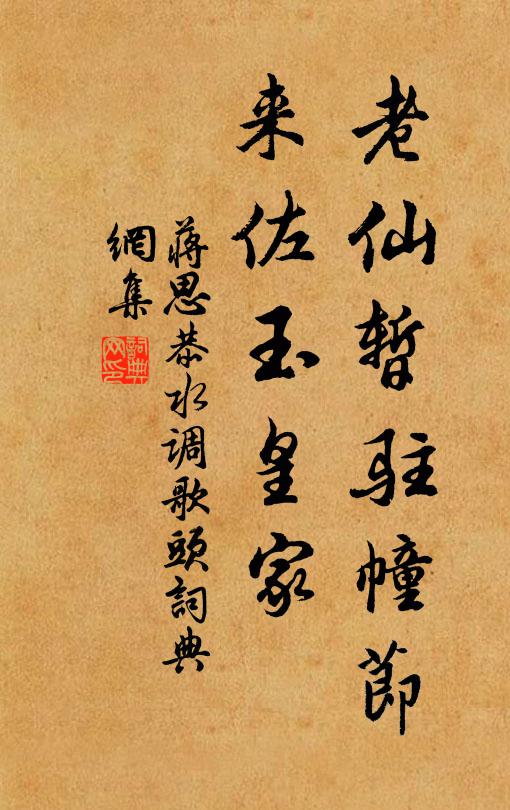 老仙暂驻幢節
来佐玉皇家
蒋思恭水调歌頭詞典
網集
詞典網印